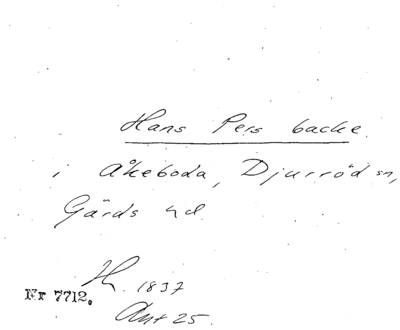 Hans Pers backe.
i Åkeboda, Djurröd sn,
Gärds hd.
H. 1837
Nr 7712.
Ant 25.